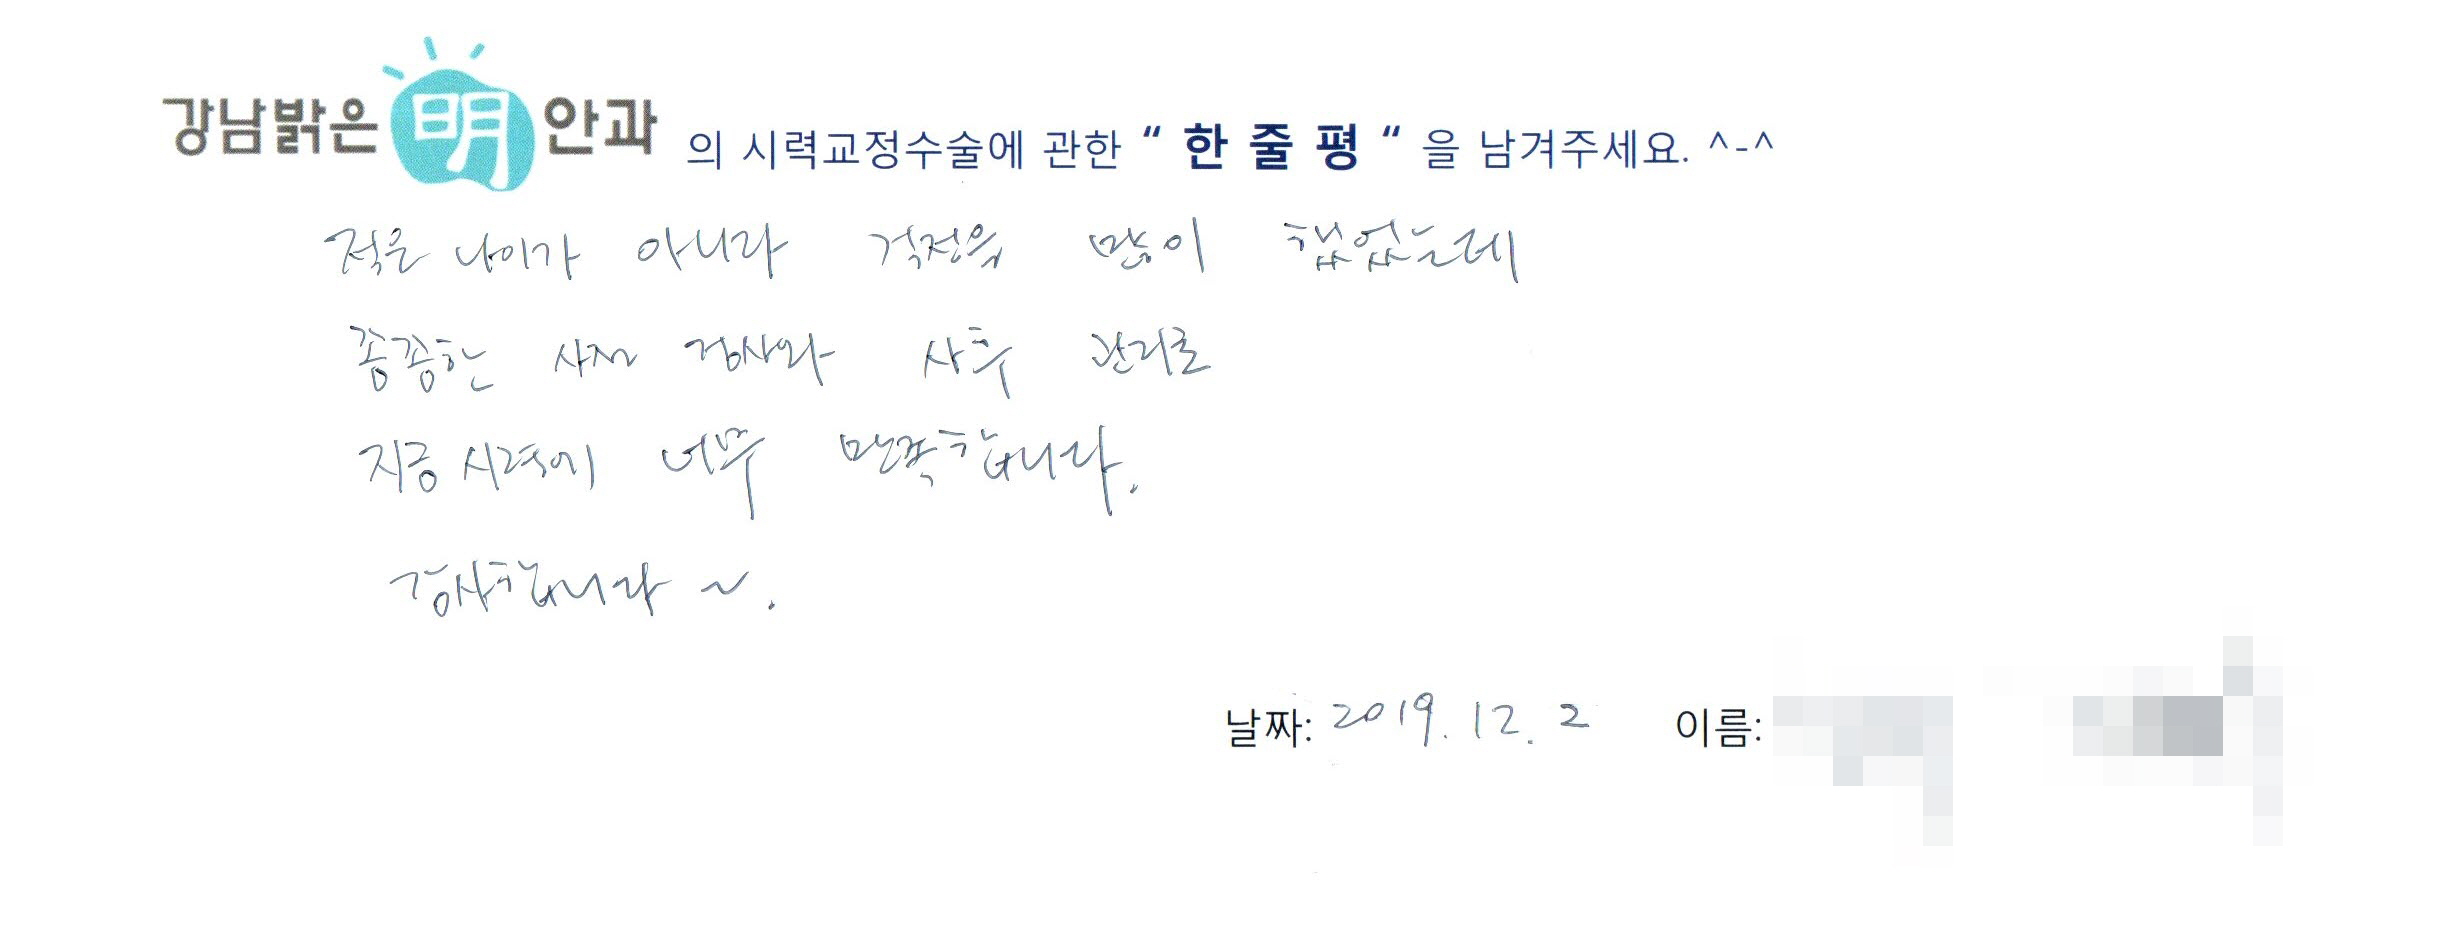 강남밝은 明 안과 의 시력교정수술에 관한 “ 한 줄 평 “ 을 남겨주세요. ^-^
적은 나이가 아니라 걱정을 많이 했었는데
꼼꼼한 사전 검사와 사후 관리로
지금 시력에 너무 만족합니다.
감사합니다 ~.
날짜: 2019. 12. 2 이름: